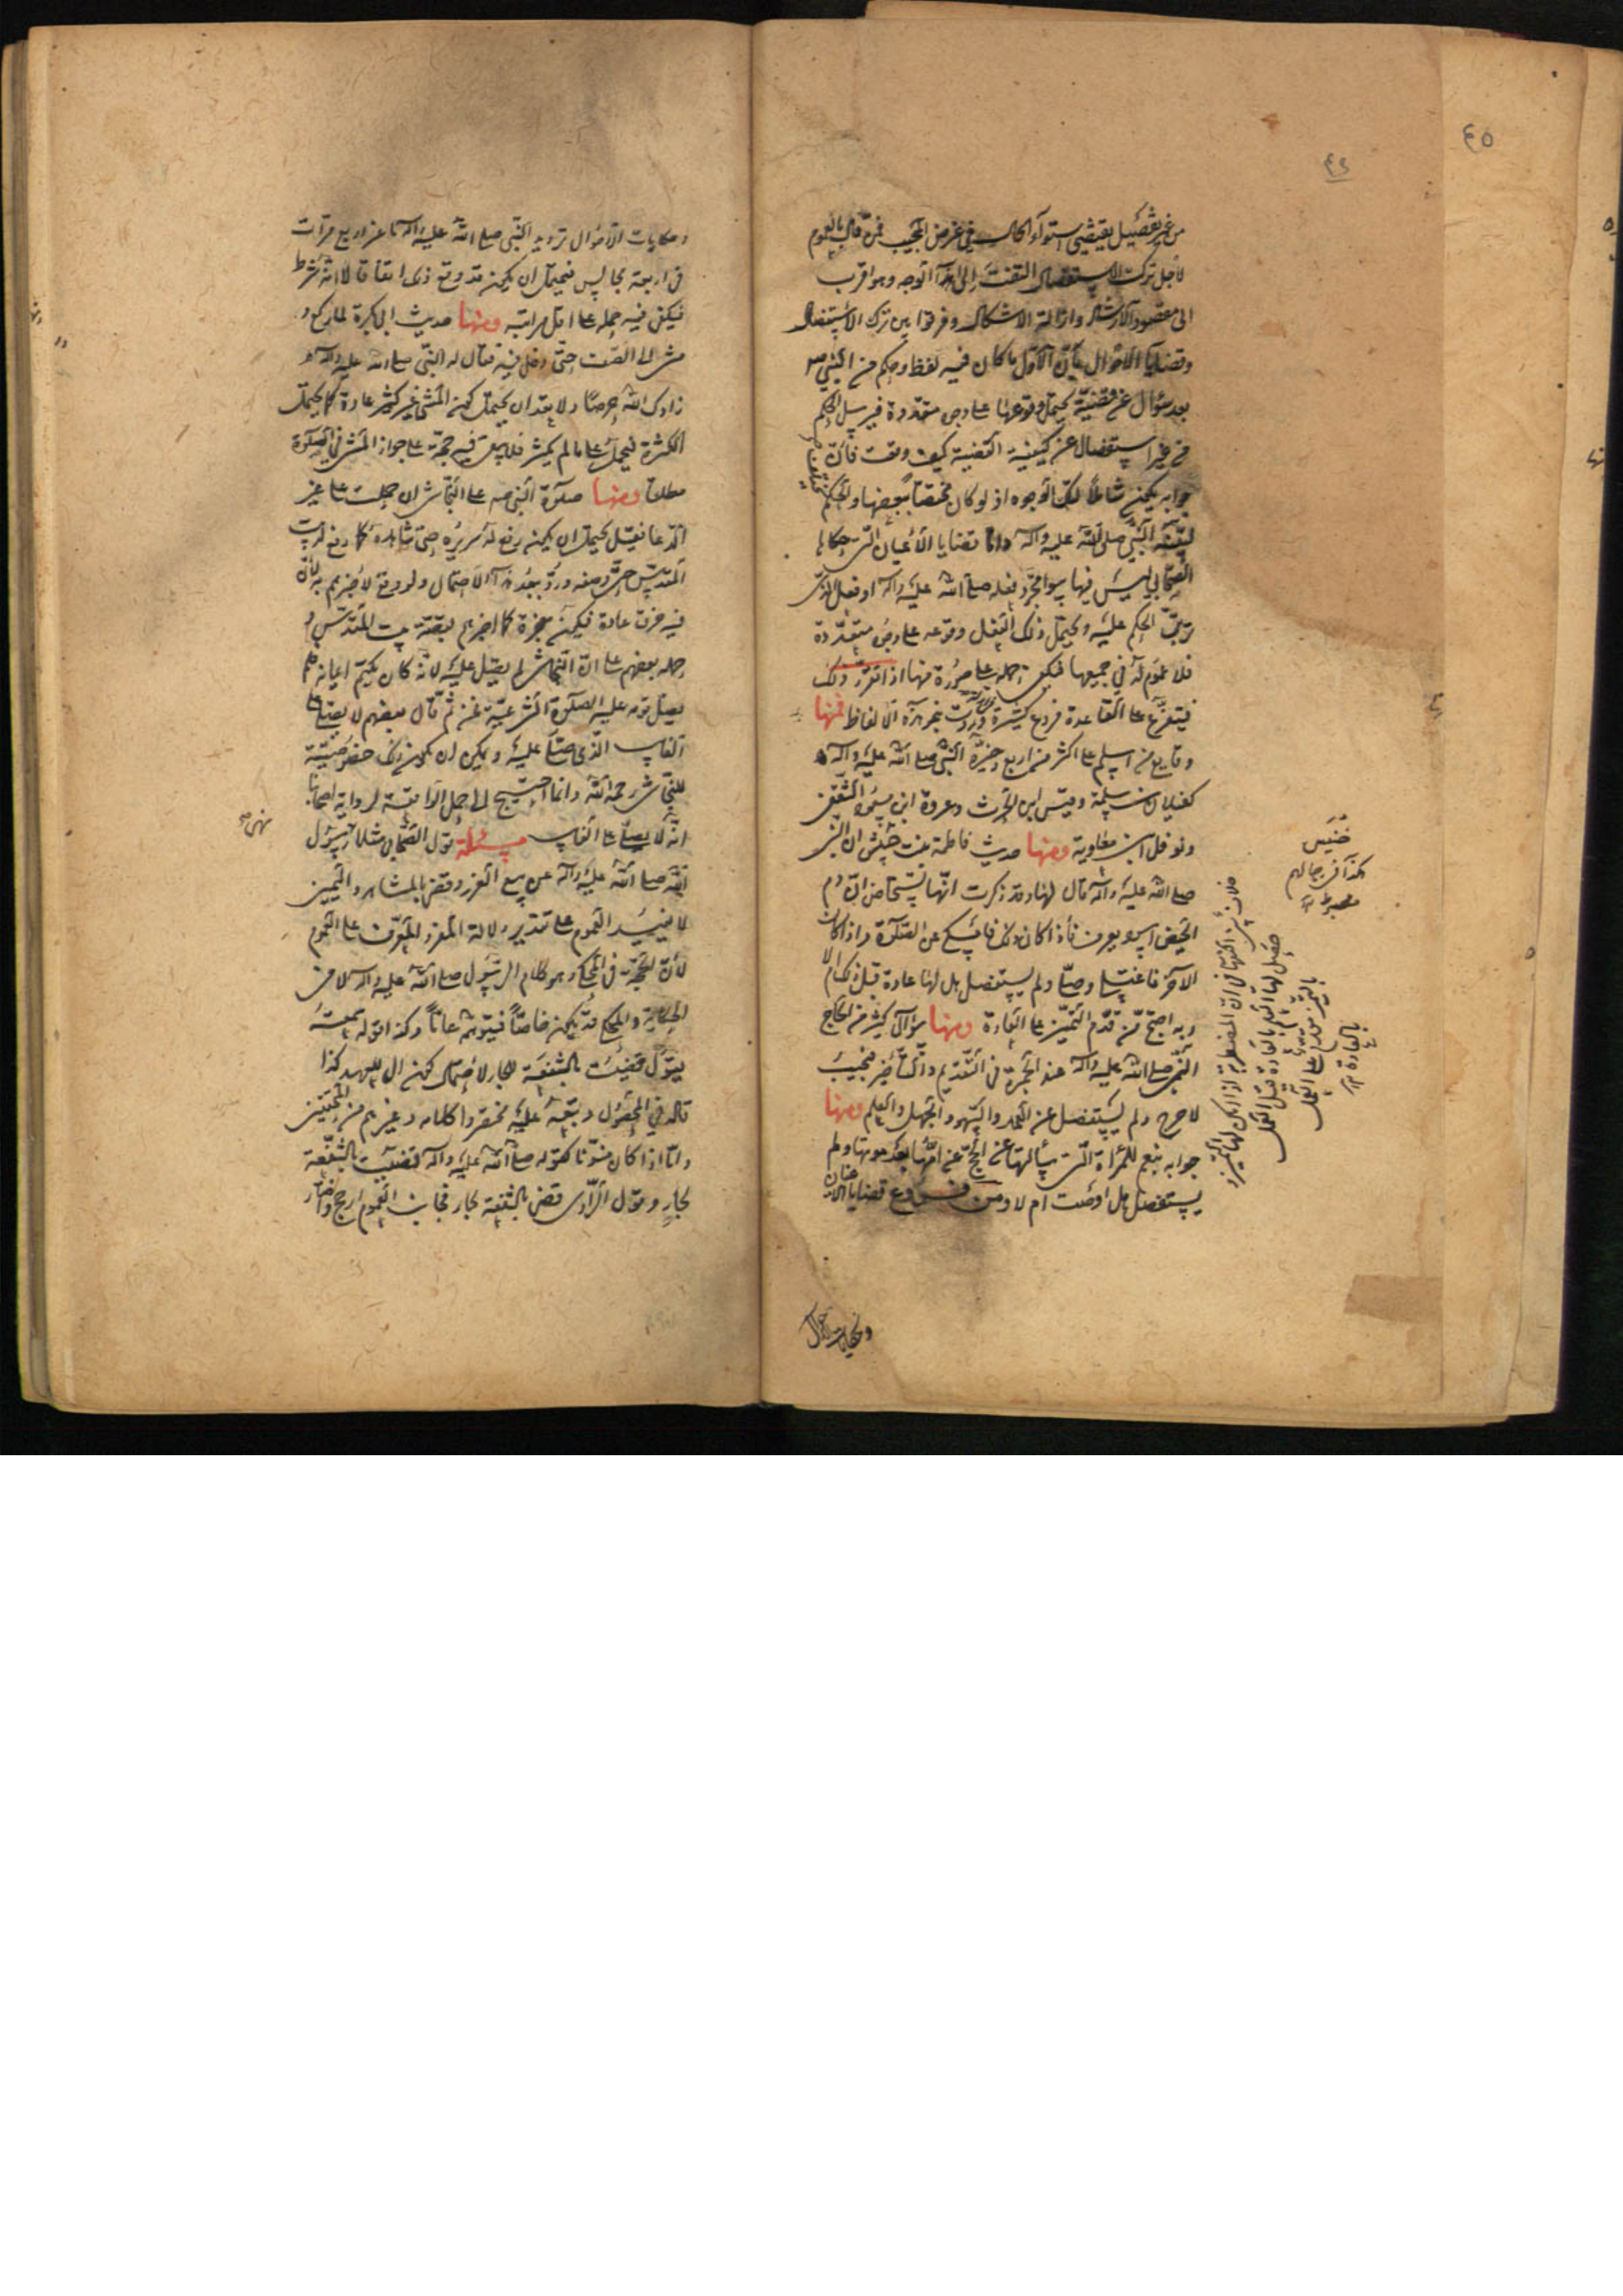 ٤٥
٤٢
من غير تفصيل يقتضي استواء الحال في غرض المجيب فمن قال بالعموم
لأجل ترك الاستفصال التفت إلى هذا الوجه وهو أقرب
الى مقصود الارشاد وازالة الاشكال وفرقوا بين ترك الاستفصال
وقضايا الاحوال بأن الاول ما كان فيه لفظ وحكم من النبي ص
بعد سؤال عن قضية يحتمل وقوعها على وجوه متعددة فيرسل الحكم
من غير استفصال عن كيفية القضية كيف وقعت فان
جوابه يكون شاملا لتلك الوجوه اذ لو كان مختصا ببعضها والحكم
لبينه النبي صلى الله عليه وآله واما قضايا الأعيان التي حكاها
الصحابي ليس فيها سوا مجرد فعله صلى الله عليه وآله او فعل الذي
ترتب الحكم عليه ويحتمل ذلك الفعل وقوعه على وجوه متعددة
فلا عموم له في جميعها فيكفي حمله على صورة منها اذا تقرر ذلك
فيتفرع على القاعدة فروع كثيرة وردت بهذه الالفاظ فمنها
وقايع من اسلم على اكثر من اربع وخيره النبي صلى الله عليه وآله
كغيلان بن سلمة وقيس ابن الحرث وعروة ابن مسعود الثقفي
ونوفل ابن معاوية ومنها حديث فاطمة بنت حبيش ان النبي
صلى الله عليه وآله قال لها وقد ذكرت انها تستحاض ان دم
الحيض اسود يعرف فاذا كان ذلك فامسكي عن الصلوة واذا كان
الآخر فاغتسلي وصلي ولم يستفصل هل لها عادة قبل ذلك ام لا
وبه احتج من قدم التميز على العادة ومنها سؤال كثير من الحاج
النبي صلى الله عليه وآله عند الجمرة في التقديم والتأخير فيجيب
لا حرج ولم يستفصل عن العمد والسهو والجهل والعلم ومنها
جوابه بنعم للمرأة التي سألته عن الحج عن امها بعد موتها ولم
يستفصل هل اوصت ام لا ومن فروع قضايا الاعيان
وحكايات الاحوال
خنيس
كذا في رجالهم
مضبوط
بالعادة
وحكايات الاحوال ترديد النبي صلى الله عليه وآله ماعز اربع مرات
في اربعة مجالس فيحتمل ان يكون قد وقع ذلك اتفاقا لا انه شرط
فيكفي فيه حمله على اقل مراتبه ومنها حديث ابي بكرة لما ركع و
مشى الى الصف حتى دخل فيه فقال له النبي صلى الله عليه وآله
زادك الله حرصا ولا تعد ان يحتمل كون المشي غير كثير عادة كما يحتمل
الكثرة فيحمل على ما لم يكثر فلا يبقى فيه حجة على جواز المشي في الصلوة
مطلقا ومنها صلوة النبي ص على النجاشي ان حملت على غير
الدعا فقيل يحتمل ان يكون رفع له سريره حتى شاهده كما رفع له بيت
المقدس حتى وصفه ورد ببعد هذا الاحتمال ولو وقع لأخبرهم به لأن
فيه خرق عادة فيكون معجزة كما اخبرهم بقصة بيت المقدس و
حمله بعضهم على ان النجاشي لم يصل عليه لانه كان يكتم ايمانه فلم
يصل قومه عليه الصلوة الشرعية فمن ثم قال بعضهم لا يصلى على
الغايب الذي صلي عليه ويمكن ان يكون ذلك خصوصية
للنجاشي رحمه الله وانما احتيج الى حمل الواقعة لرواية اصحابنا
انه لا يصلى على الغايب مسئلة قول الصحابي مثلا رسول
نهى ص
الله صلى الله عليه وآله عن بيع الغرر وقضى بالشاهد واليمين
لا يفيد العموم على تقدير دلالة المفرد المعرف على العموم
لأن الحجة في المحكي وهو كلام الرسول صلى الله عليه وآله لا في
الحكاية والمحكي قد يكون خاصا فيتوهمه عاما وكذا قوله سمعته
يقول قضيت بالشفعة للجار لاحتمال كون ال للعهد كذا
قاله في المحصول وتبعه عليه مختصروا كلامه وغيرهم من المحققين
واما اذا كان منونا كقوله صلى الله عليه وآله قضيت بالشفعة
لجار وقول الراوي قضى بالشفعة لجار فجانب العموم ارجح واختار